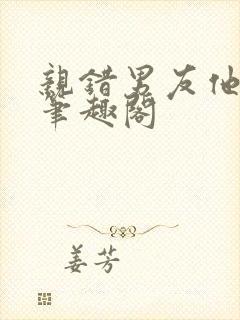 親錯男友他
筆趣閣
姜芳